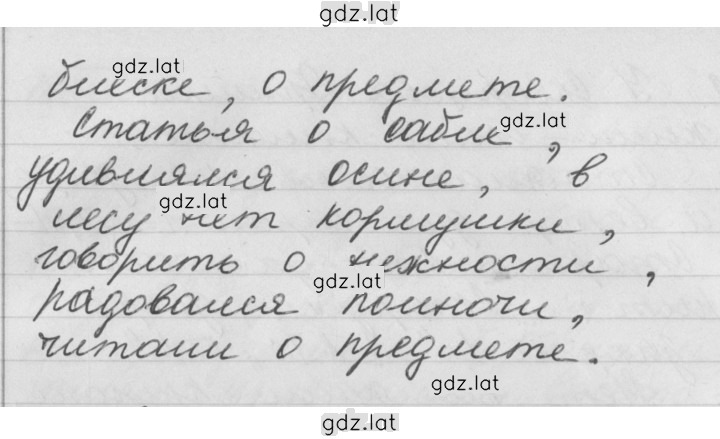 gdz.lat
gdz.lat
блеске, о предмете.
Статья о сабле,
gdz.lat
удивлялся осине, в
gdz.lat
лесу нет кормушки,
говорить о нежности,
gdz.lat
радовался полночи,
читали о предмете.
gdz.lat
gdz.lat